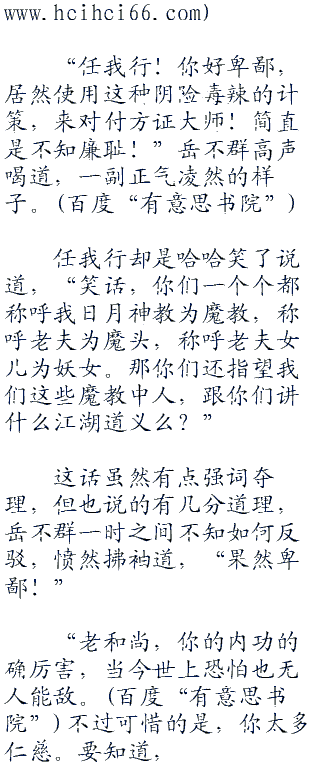 www.hcihci66.com)
“任我行！你好卑鄙，
居然使用这种阴险毒辣的计
策，来对付方证大师！简直
是不知廉耻！”岳不群高声
喝道，一副正气凌然的样
子。(百度“有意思书院”)
任我行却是哈哈笑了说
道，“笑话，你们一个个都
称呼我日月神教为魔教，称
呼老夫为魔头，称呼老夫女
儿为妖女。那你们还指望我
们这些魔教中人，跟你们讲
什么江湖道义么？”
这话虽然有点强词夺
理，但也说的有几分道理，
岳不群一时之间不知如何反
驳，愤然拂袖道，“果然卑
鄙！”
“老和尚，你的内功的
确厉害，当今世上恐怕也无
人能敌。(百度“有意思书
院”)不过可惜的是，你太多
仁慈。要知道，